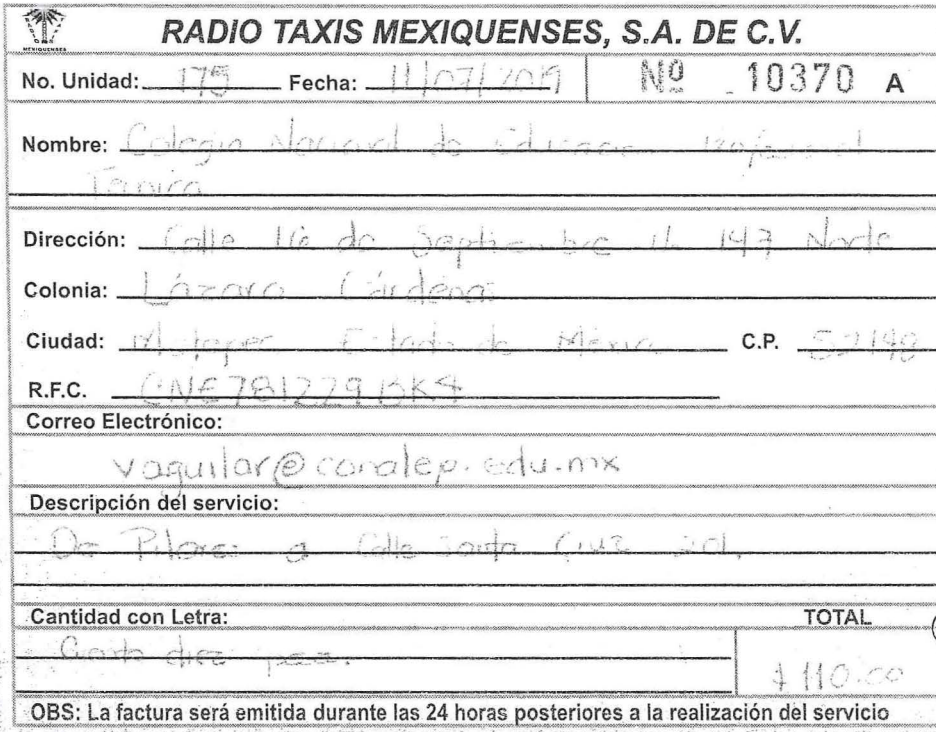 MEXIQUENSES
RADIO TAXIS MEXIQUENSES, S.A. DE C.V.
No. Unidad: 175 Fecha: 11/07/2019 Nº 10370 A
Nombre: Colegio Nacional de Educacion Profesional
Tecnica
Dirección: Calle 16 de Septiembre 147 Norte
Colonia: Lázaro Cárdenas
Ciudad: Metepec Estado de México C.P. 52148
R.F.C. CNE781229BK4
Correo Electrónico:
vaguilar@conalep.edu.mx
Descripción del servicio:
De Pilares a Calle Santa Cruz 201.
Cantidad con Letra: TOTAL
Ciento diez
$110.00
OBS: La factura será emitida durante las 24 horas posteriores a la realización del servicio